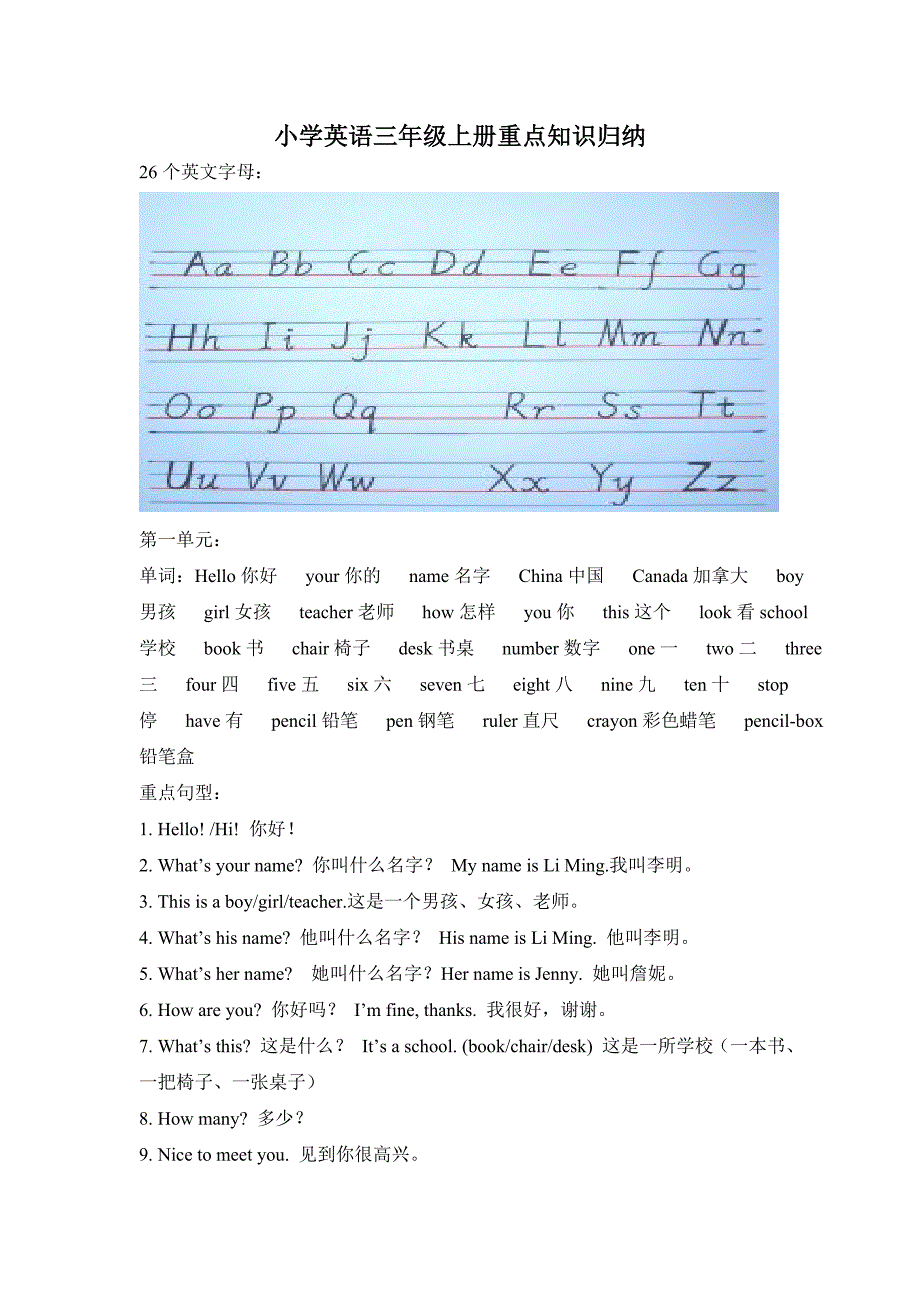 小学英语三年级上册重点知识归纳
26 个英文字母：
Aa Bb Cc Dd Ee Ff Gg
Hh Ii Jj Kk Ll Mm Nn
Oo Pp Qq Rr Ss Tt
Uu Vv Ww Xx Yy Zz
第一单元：
单词：Hello 你好 your 你的 name 名字 China 中国 Canada 加拿大 boy
男孩 girl 女孩 teacher 老师 how 怎样 you 你 this 这个 look 看 school
学校 book 书 chair 椅子 desk 书桌 number 数字 one 一 two 二 three
三 four 四 five 五 six 六 seven 七 eight 八 nine 九 ten 十 stop
停 have 有 pencil 铅笔 pen 钢笔 ruler 直尺 crayon 彩色蜡笔 pencil-box
铅笔盒
重点句型：
1. Hello! /Hi! 你好！
2. What’s your name? 你叫什么名字？ My name is Li Ming.我叫李明。
3. This is a boy/girl/teacher.这是一个男孩、女孩、老师。
4. What’s his name? 他叫什么名字？ His name is Li Ming. 他叫李明。
5. What’s her name? 她叫什么名字？Her name is Jenny. 她叫詹妮。
6. How are you? 你好吗？ I’m fine, thanks. 我很好，谢谢。
7. What’s this? 这是什么？ It’s a school. (book/chair/desk) 这是一所学校（一本书、
一把椅子、一张桌子）
8. How many? 多少？
9. Nice to meet you. 见到你很高兴。